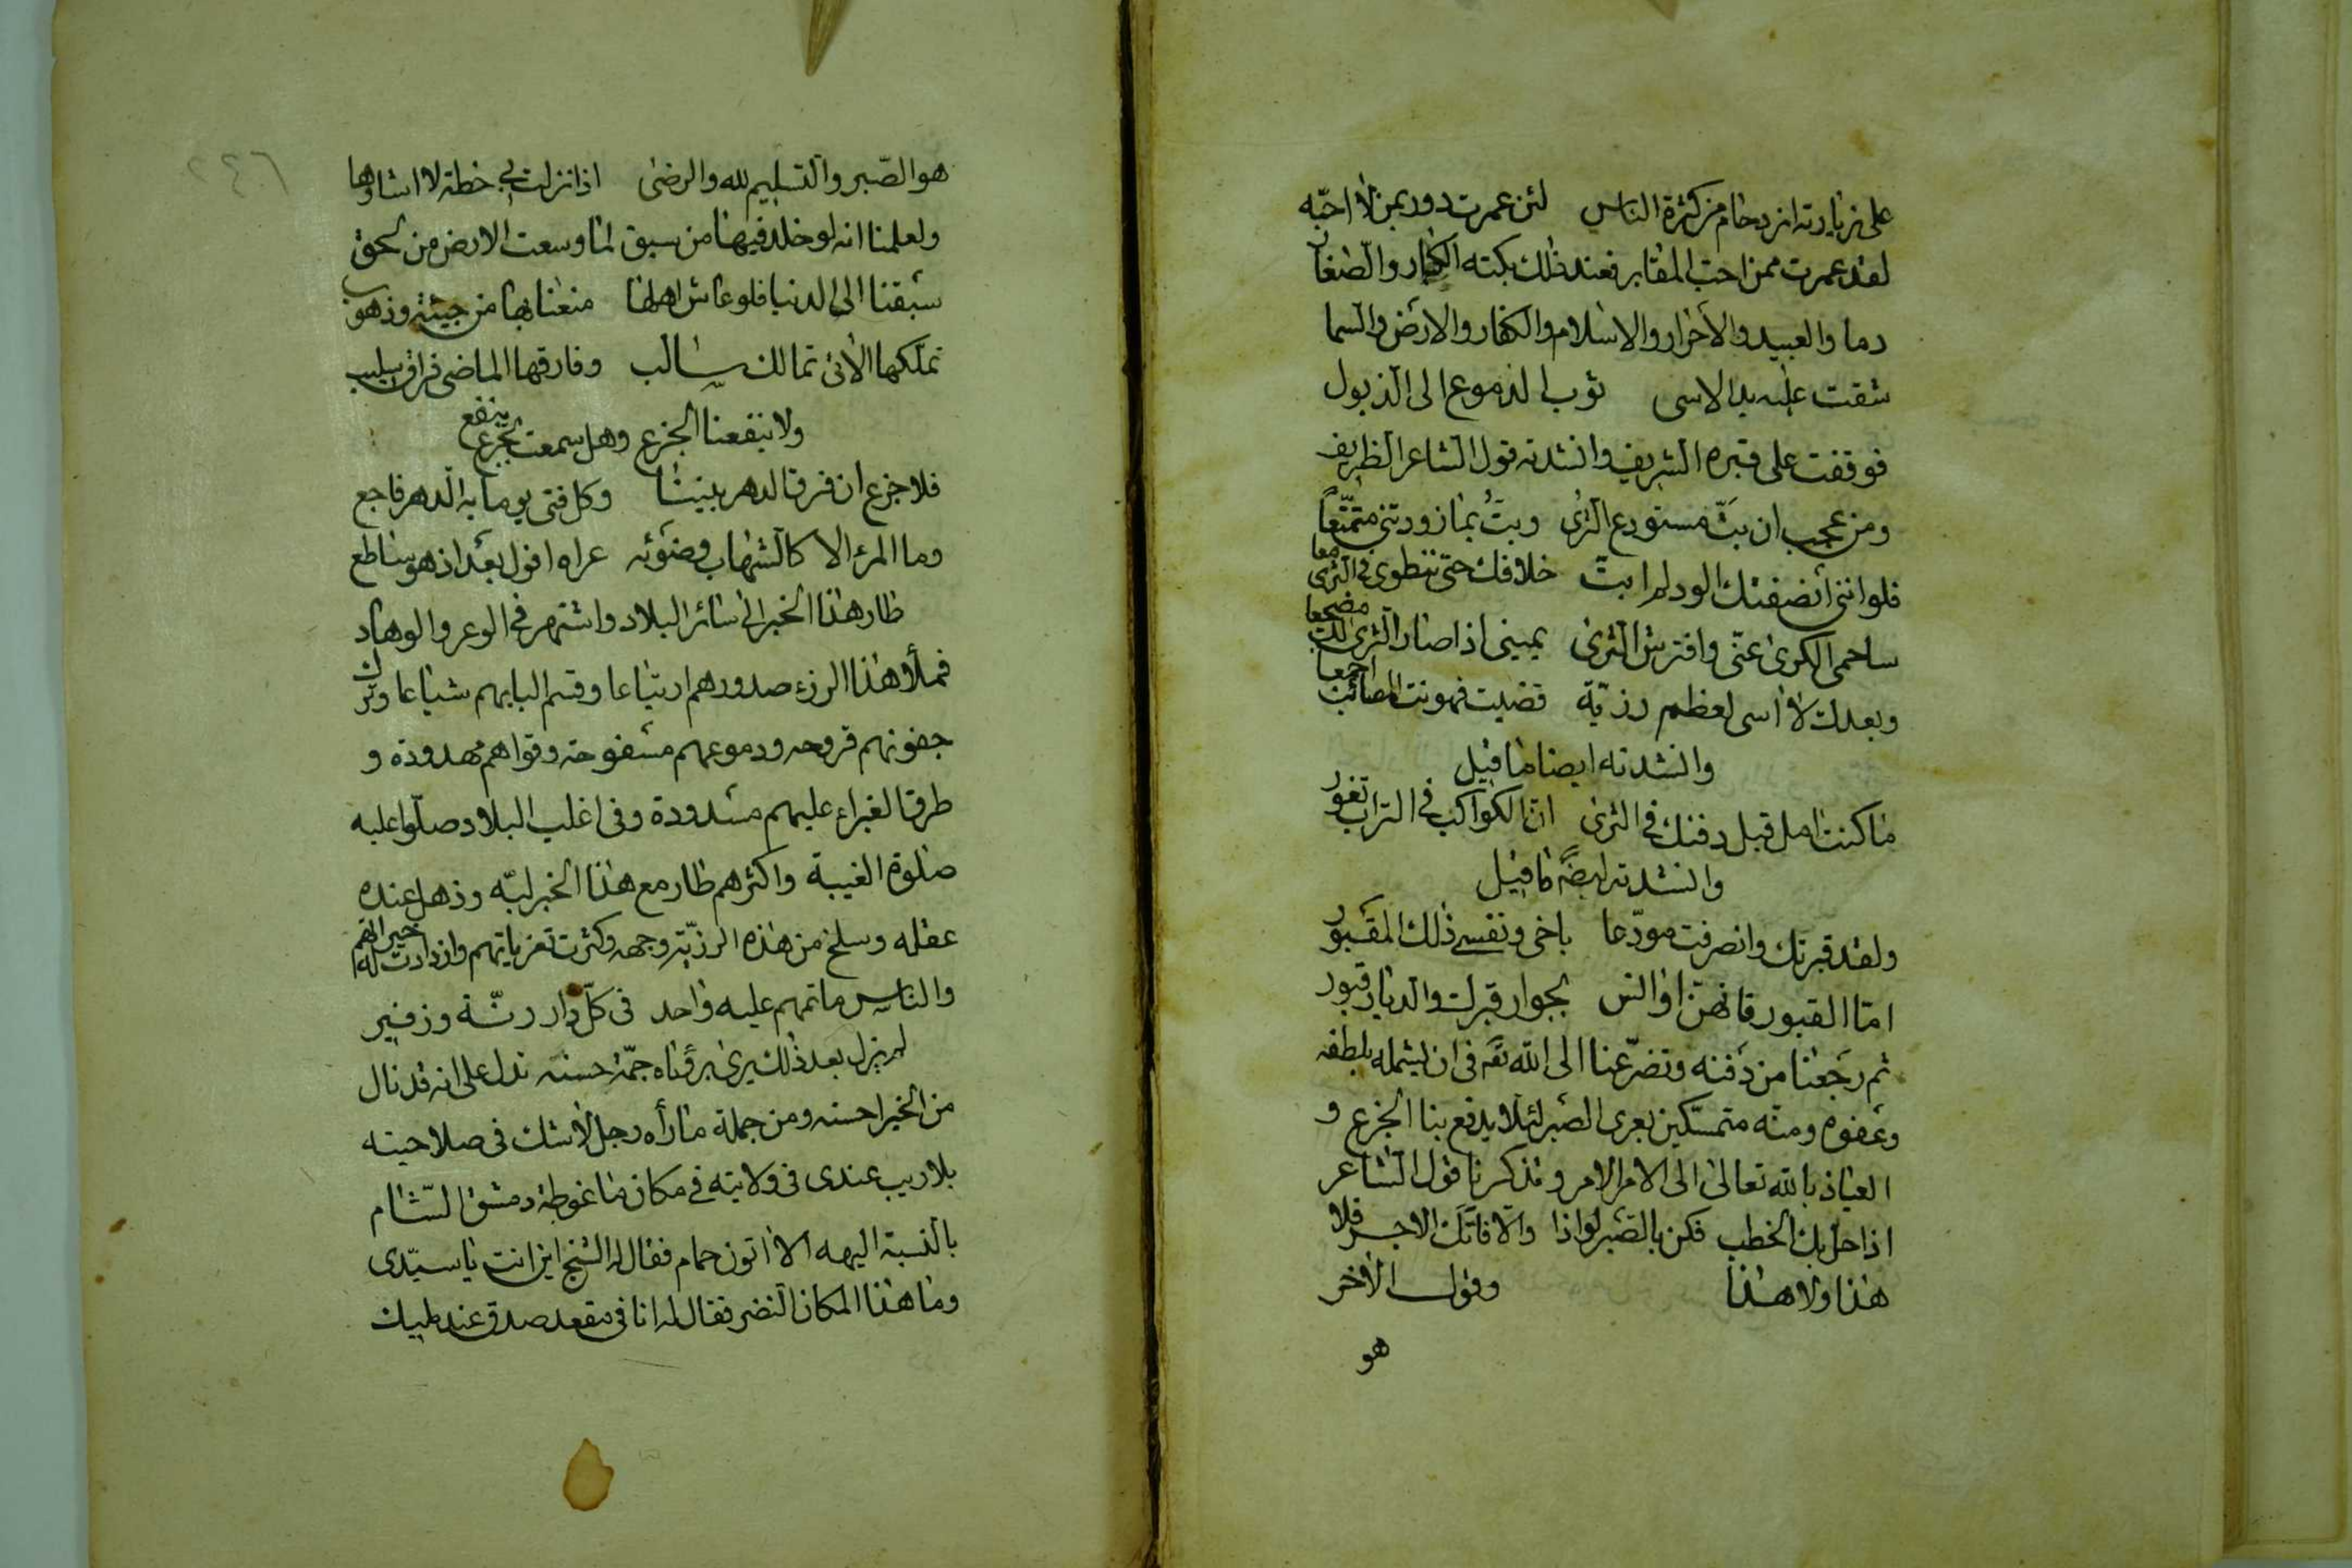 على زيارته ازدحام من كثرة الناس لئن عمرت دور بمن لا احبّه
لقد عمرت ممن احب المقابر فعند ذلك بكته الكبار والصغار
دما والعبيد والاحرار والاسلام والكفار والارض والسما
شقت عليه يد الاسى ثوب الدموع الى الذيول
فوقفت على قبره الشريف وانشدته قول الشاعر الظريف
ومن عجب ان بتّ مستودع الثرى وبتُ بما زودتنى متمتّعاً
فلو اننى انصفتك الود لم ابت خلافك حتى ننطوى فى الثرى معا
ساحمى الكرى عنّى وافترش الثرى يمينى اذا صار الثرى لك مضجعا
وبعدك لا اسى لعظم رزيّة قضيت فهونت المصائب اجمعا
وانشدته ايضا ما قيل
ما كنت امل قبل دفنك فى الثرى انّ الكواكب فى التراب تغور
وانشدته ايضًا ما قيل
ولقد قبرتك وانصرفت مودّعا باخى ونفسى ذلك المقبور
امّا القبور فانهنّ اوانس بجوار قبرك والديار قبور
ثم رجعنا من دفنه وتضرّعنا الى الله تعه فى ان يشمله بلطفه
وعفوه ومنّه متمسّكين بعرى الصبر لئلا يدفع بنا الجزع و
العياذ بالله تعالى الى الامر الامر وتذكرنا قول الشاعر
اذا حل بك الخطب فكن بالصّبر لواذا والا فاتك الاجر فلا
هذا ولا هذا وقول الاخر
هو
هو الصّبر والتسليم لله والرضى اذا نزلت بى خطة لا اشاؤها
ولعلمنا انه لو خلد فيها من سبق لما وسعت الارض من لحق
سبقنا الى الدنيا فلو عاش اهلها منعنا بها من جيئة وذهوب
تملّكها الاتى تمالك سالب وفارقها الماضى فراق سليب
ولا ينفعنا الجزع وهل سمعت بجزع ينفع
فلا جزع ان فرق الدهر بيننا وكل فتى يوما به الدهر فاجع
وما المرء الا كالشهاب وضوئه عراه افول بعد اذ هو ساطع
طار هذا الخبر الى سائر البلاد واشتهر فى الوعر والوهاد
فملأ هذا الرزء صدورهم ارتياعا وقسم البابهم شياعا وترك
جفونهم قروحه ودموعهم مسفوحة وقواهم مهدودة و
طرق الغبراء عليهم مسدودة وفى اغلب البلاد صلّوا عليه
صلوة الغيبة واكثرهم طار مع هذا الخبر لبّه وذهل عنده
عقله وسلخ من هذه الرزيّة وجهه وكثرت تعزياتهم وازدادت له
والناس ماتمهم عليه واحد فى كلّ دار رنّة وزفير
لم يزل بعد ذلك يرى برؤياه جمّة حسنه تدل على انه قد نال
من الخير احسنه ومن جملة ما رأه رجل لا شك فى صلاحيته
بلا ريب عندى فى ولايته فى مكان ما غوطة دمشق الشام
بالنسبة اليه الا اتون حمام فقال له الشيخ اين انت يا سيّدى
وما هذا المكان النضر فقال له انا فى مقعد صدق عند مليك